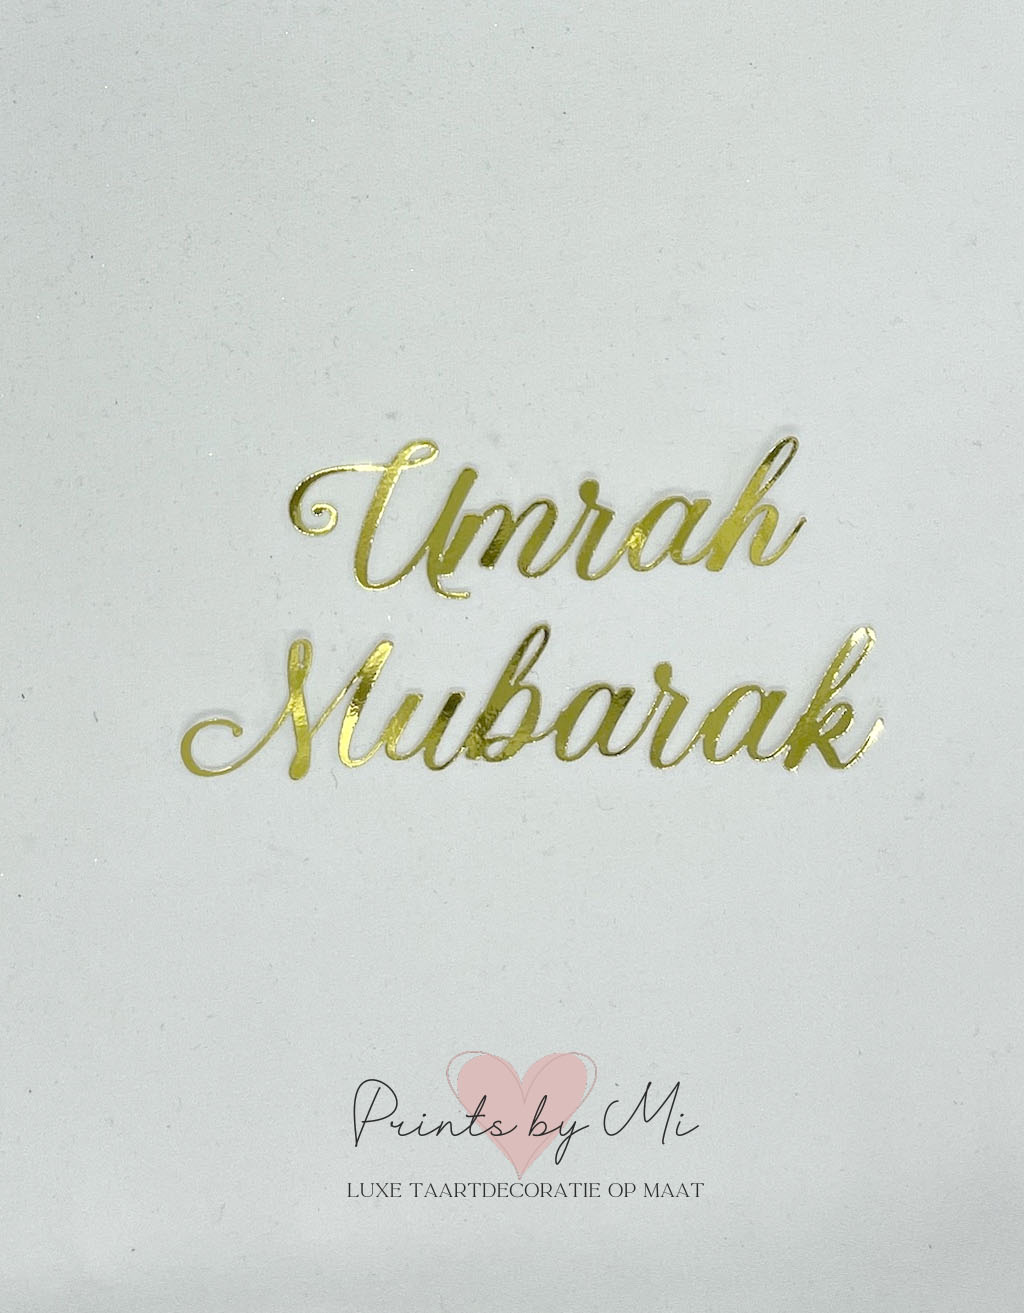 Umrah
Mubarak
Prints by Mi
LUXE TAARTDECORATIE OP MAAT